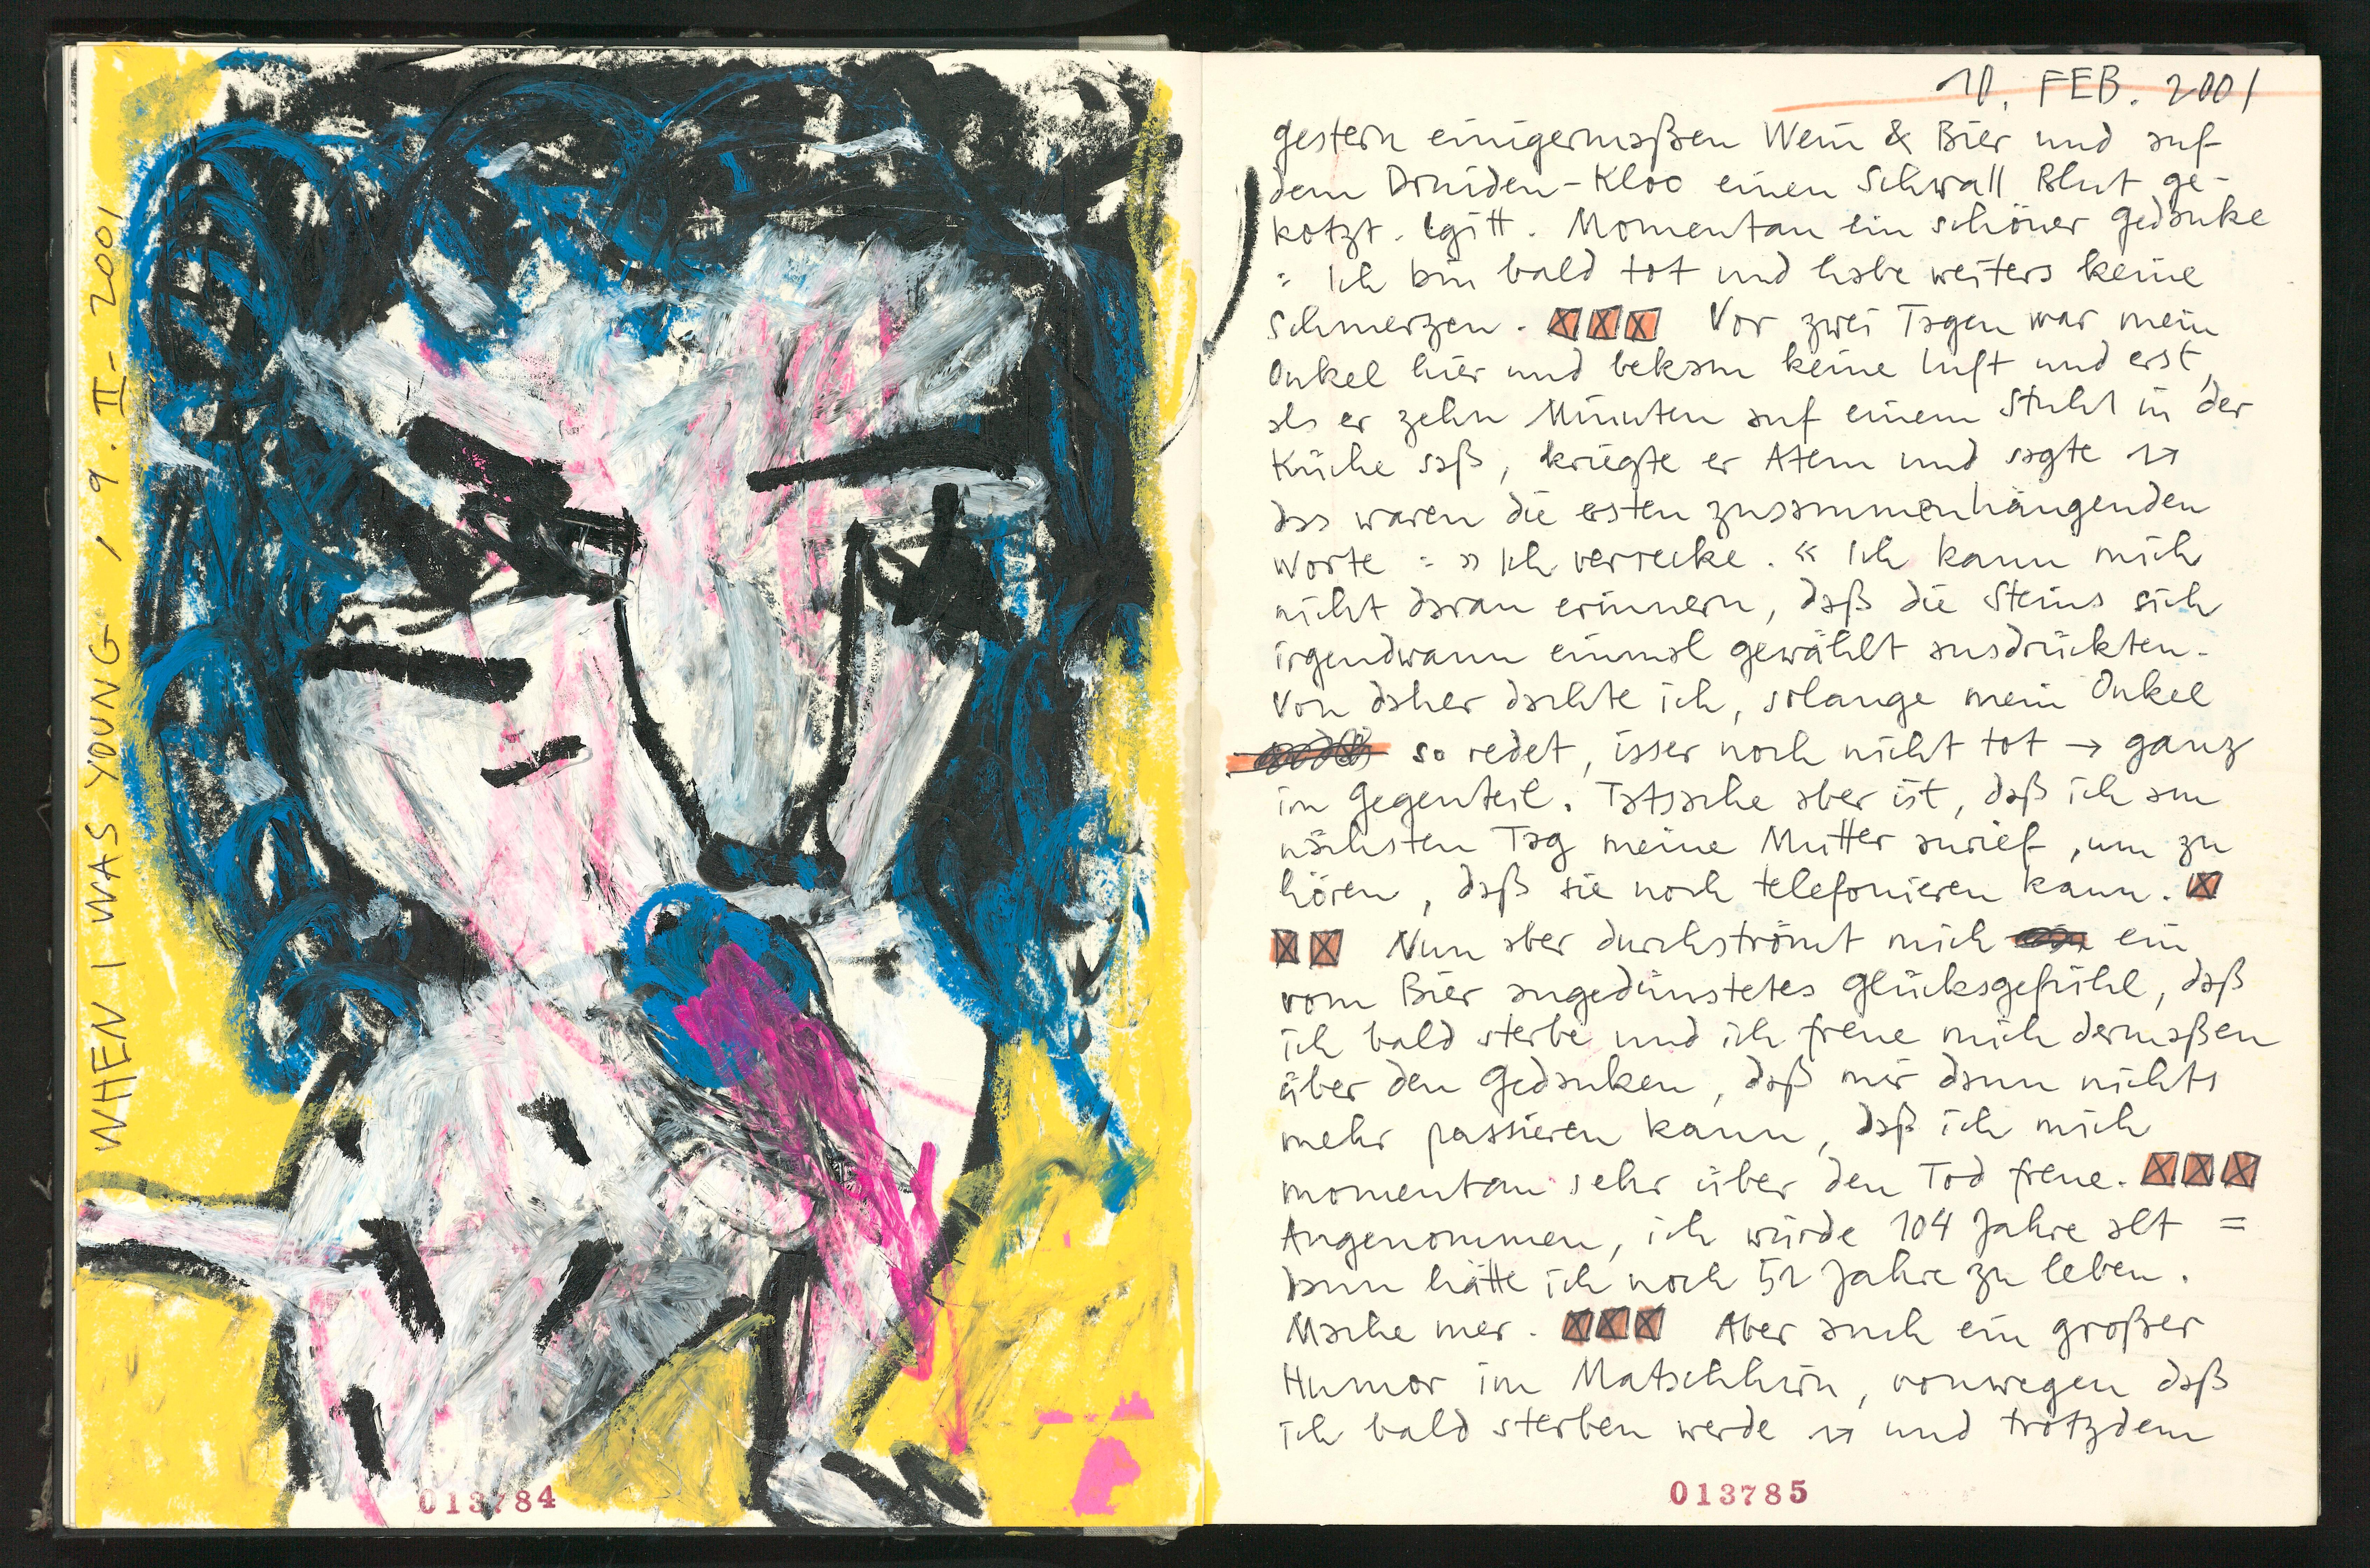 WHEN I WAS YOUNG, 9. II - 2001
013784
10. FEB. 2001
gestern einigermaßen Wein & Bier und auf
dem Druiden-Kloo einen Schwall Blut ge-
kotzt. Igitt. Momentan ein schöner Gedanke
: Ich bin bald tot und habe weiters keine
Schmerzen. ☒☒☒ Vor zwei Tagen war mein
Onkel hier und bekam keine Luft und erst,
als er zehn Minuten auf einem Stuhl in der
Küche saß, kriegte er Atem und sagte →
das waren die ersten zusammenhängenden
Worte : » Ich verrecke. « Ich kann mich
nicht daran erinnern, daß die Steins sich
irgendwann einmal gewählt ausdrückten.
Von daher dachte ich, solange mein Onkel
so redet, isser noch nicht tot → ganz
im Gegenteil. Tatsache aber ist, daß ich am
nächsten Tag meine Mutter anrief, um zu
hören, daß sie noch telefonieren kann. ☒
☒☒ Nun aber durchströmt mich ein
vom Bier angedünstetes Glücksgefühl, daß
ich bald sterbe und ich freue mich dermaßen
über den Gedanken, daß mir dann nichts
mehr passieren kann, daß ich mich
momentan sehr über den Tod freue. ☒☒☒
Angenommen, ich würde 104 Jahre alt =
dann hätte ich noch 52 Jahre zu leben.
Mache mer. ☒☒☒ Aber auch ein großer
Humor im Matschhirn, vonwegen daß
ich bald sterben werde → und trotzdem
013785